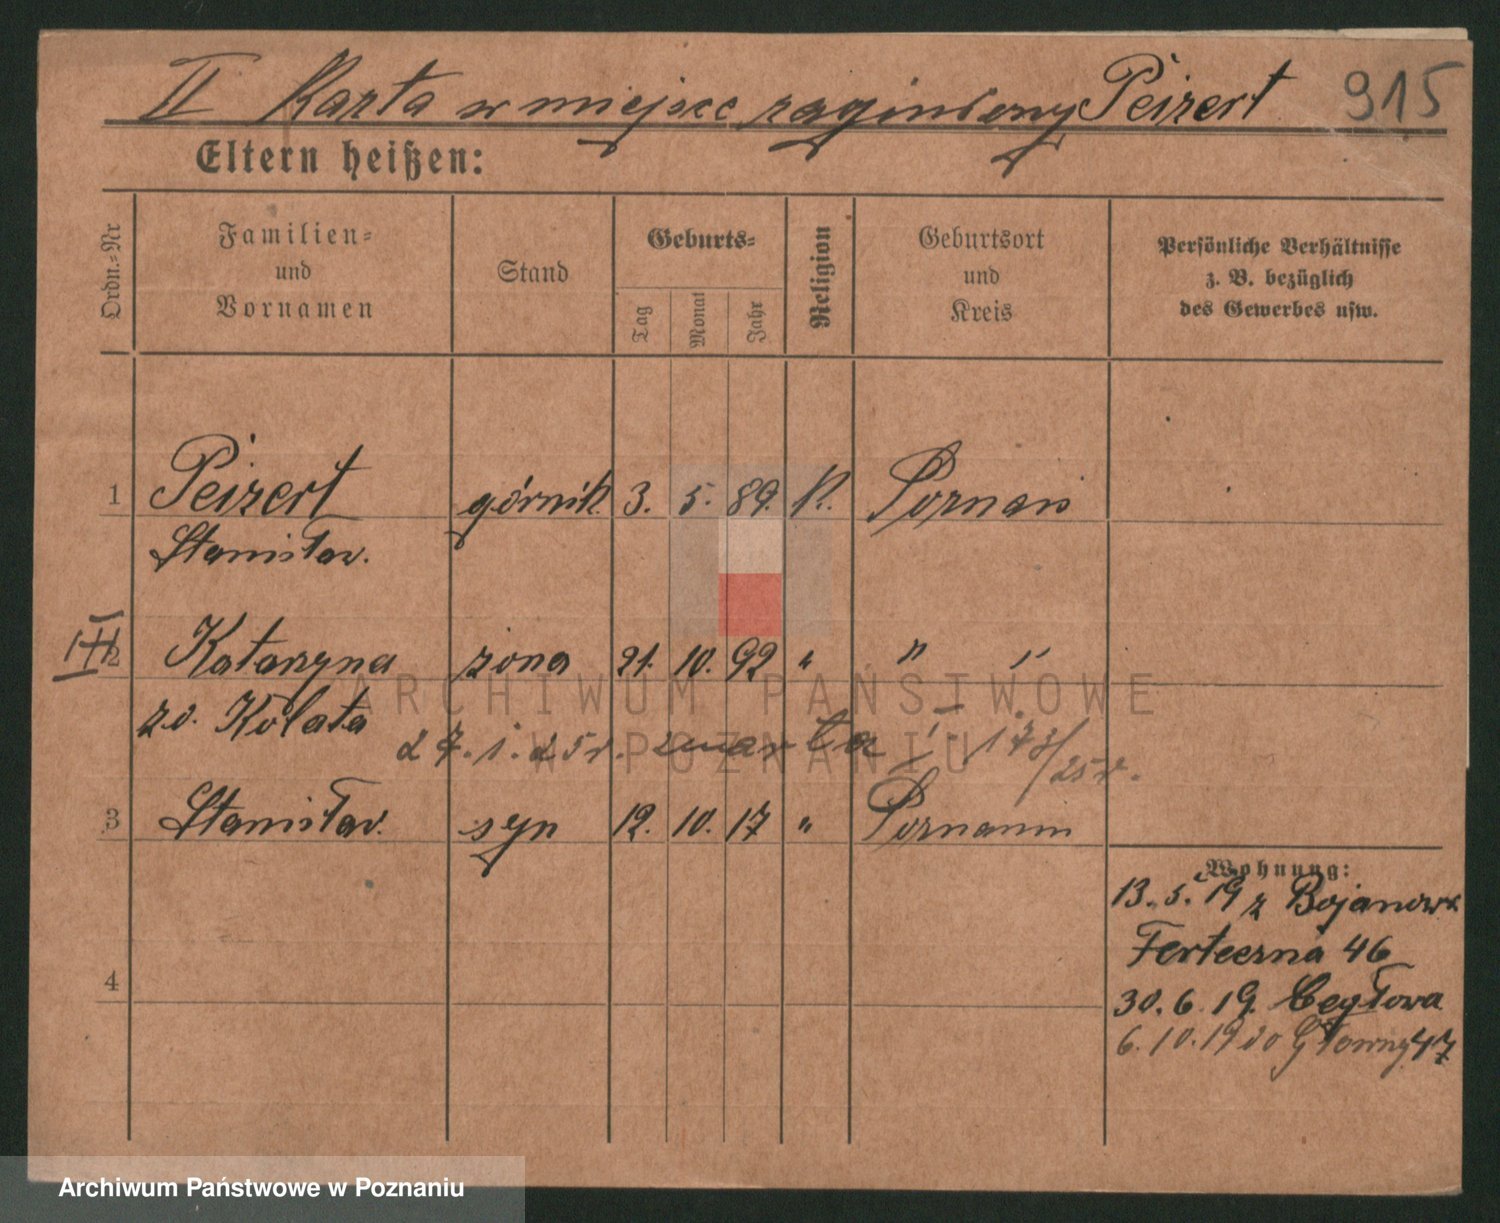 II Karta w miejsce zaginiony Peizert 915
Eltern heißen:
Ordn.=Nr
Familien=
und
Vornamen
Stand
Geburts=
Tag
Monat
Jahr
Religion
Geburtsort
und
Kreis
Persönliche Verhältnisse
z. B. bezüglich
des Gewerbes usw.
1 Peizert górnik 3. 5. 89. K. Poznań
Stanisław.
2 Katarzyna żona 21. 10. 92 " " "
zd. Kolata
27.1.25r. zmarła I. 173/25r.
3 Stanisław. syn 12. 10. 17 " Poznaniu
Wohnung:
13.5.19 z Bojanowa
Forteczna 46
30.6.19. Cegłowa
6.10.19 do Główny 47
4
ARCHIWUM PAŃSTWOWE
W POZNANIU
Archiwum Państwowe w Poznaniu